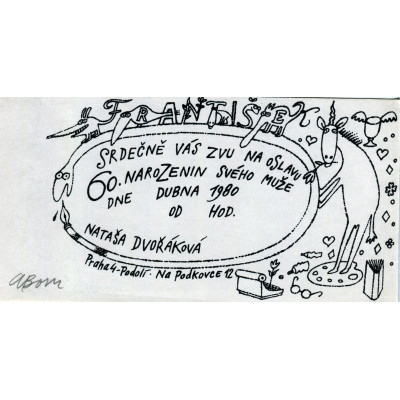 FRANTIŠEK
SRDEČNĚ VÁS ZVU NA OSLAVU
60. NAROZENIN SVÉHO MUŽE
DNE DUBNA 1980
OD HOD.
NATAŠA DVOŘÁKOVÁ
Praha4-Podolí · Na Podkovce 12
ABorn